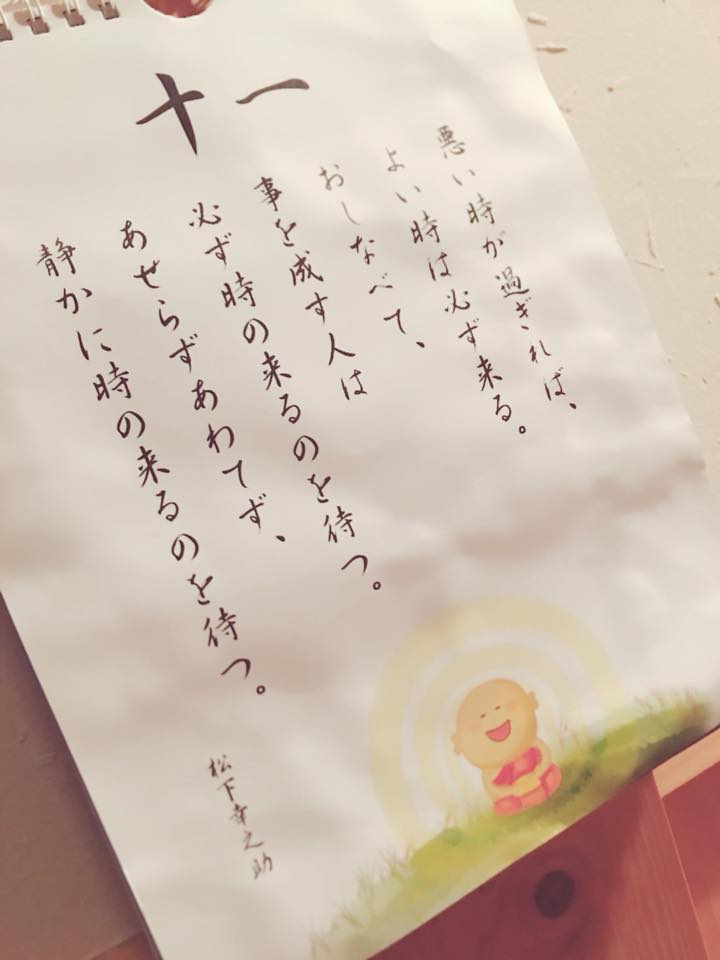 十一
悪い時が過ぎれば、
よい時は必ず来る。
おしなべて、
事を成す人は
必ず時の来るのを待つ。
あせらずあわてず、
静かに時の来るのを待つ。
松下幸之助